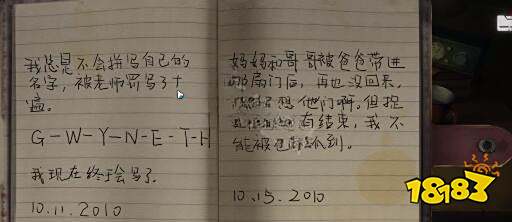 我总是不会拼写自己的
名字，被老师罚写了十
遍。
G-W-Y-N-E-T-H
我现在终于会写了。
10.11.2010
妈妈和哥哥被爸爸带进
扇门后，再也没回来，
想他们啊。但捉
有结束，我不
能被 抓到。
10.15.2010
18183